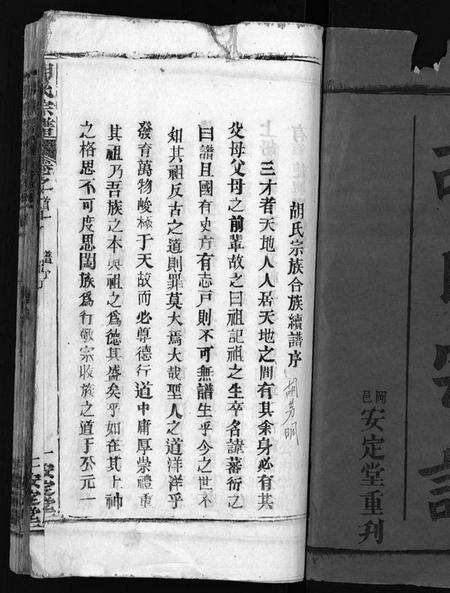 胡氏宗譜
岡邑
安定堂重刋
胡氏宗族合族續譜序
胡芳明
三才者天地人人居天地之間有其余身必有其
父母父母之前輩故之曰祖記祖之生卒名諱蕃衍之
曰譜且國有史方有志戸則不可無譜生乎今之世不
如其祖反古之道則罪莫大焉大哉聖人之道洋洋乎
發育萬物峻極于天故而必尊德行道中庸厚崇禮重
其祖乃吾族之本與祖之爲德其盛矣乎如在其上神
之格思不可度思閤族爲行敬宗收族之道于公元一
胡氏宗譜
卷之首
譜序
一
安定堂